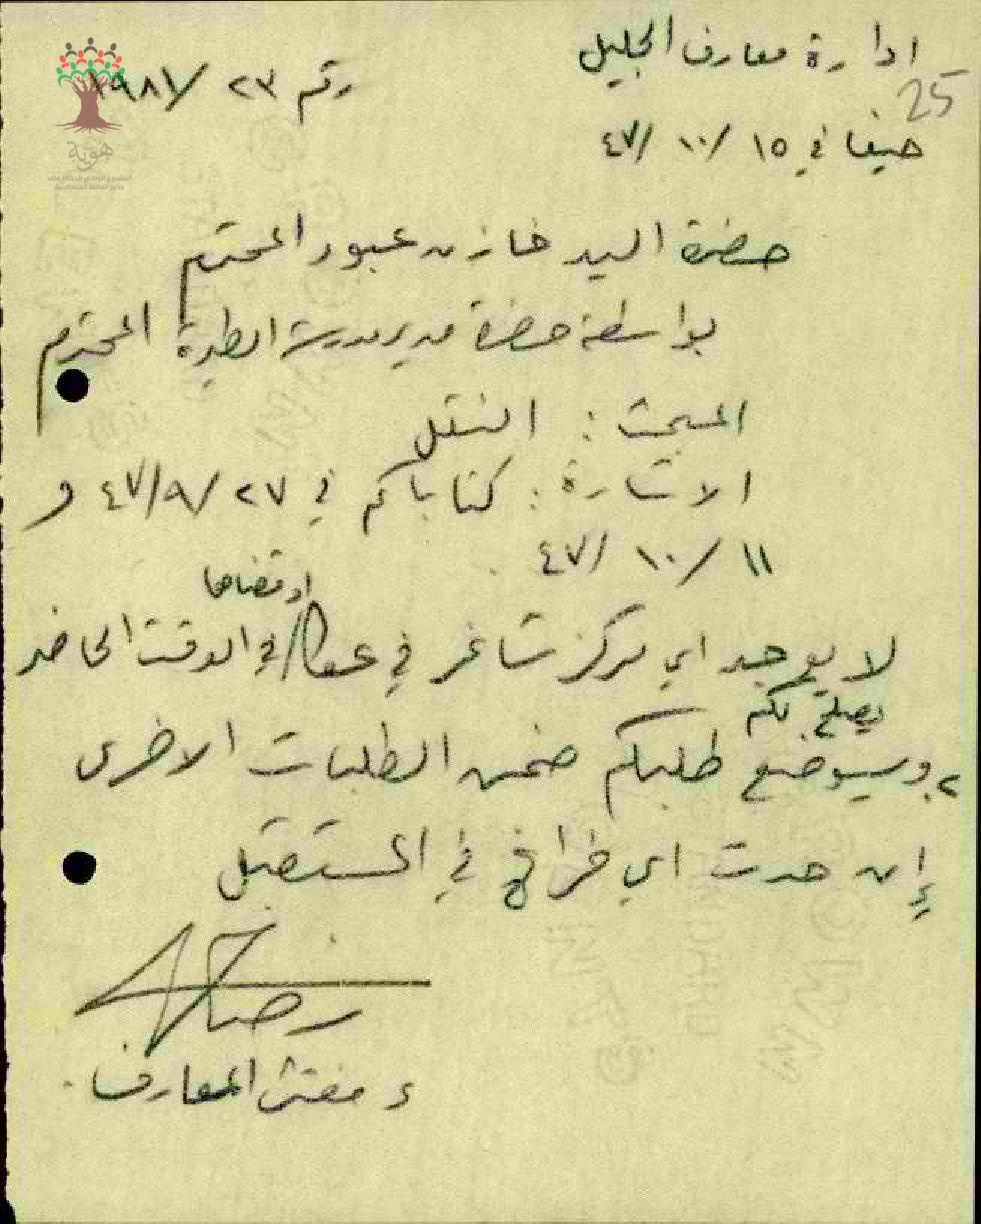 ادارة معارف الجليل
25
رقم ٢٣ /١٩٨١
حيفا في ١٥ /١٠ /٤٧
هوية
حضرة السيد خازن عبود المحترم
بواسطة حضرة مدير مدرسة الطيرة المحترم
المبحث : النقل
الاشارة : كتاباكم في ٢٧ /٩ /٤٧ و
١١ /١٠ /٤٧
لا يوجد اي مركز شاغر في عكا / او قضاها في الوقت الحاضر
يصلح لكم
٢. وسيوضع طلبكم ضمن الطلبات الاخرى
إن حدث اي فراغ في المستقبل
ء مفتش المعارف